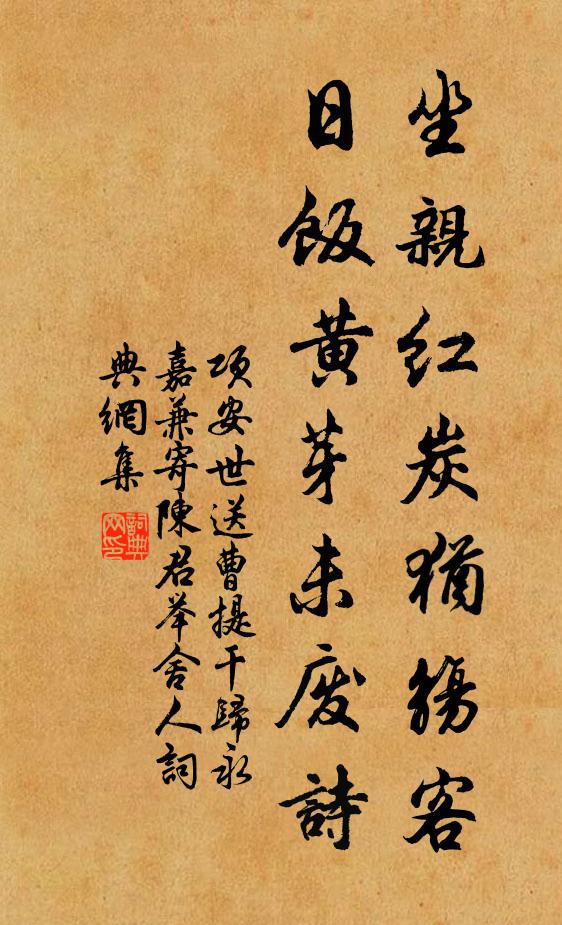 坐親紅炭猶觴客
日飯黄芽未廢詩
项安世送曹提干歸永
嘉兼寄陳君举舍人詞
典網集
詞典網印